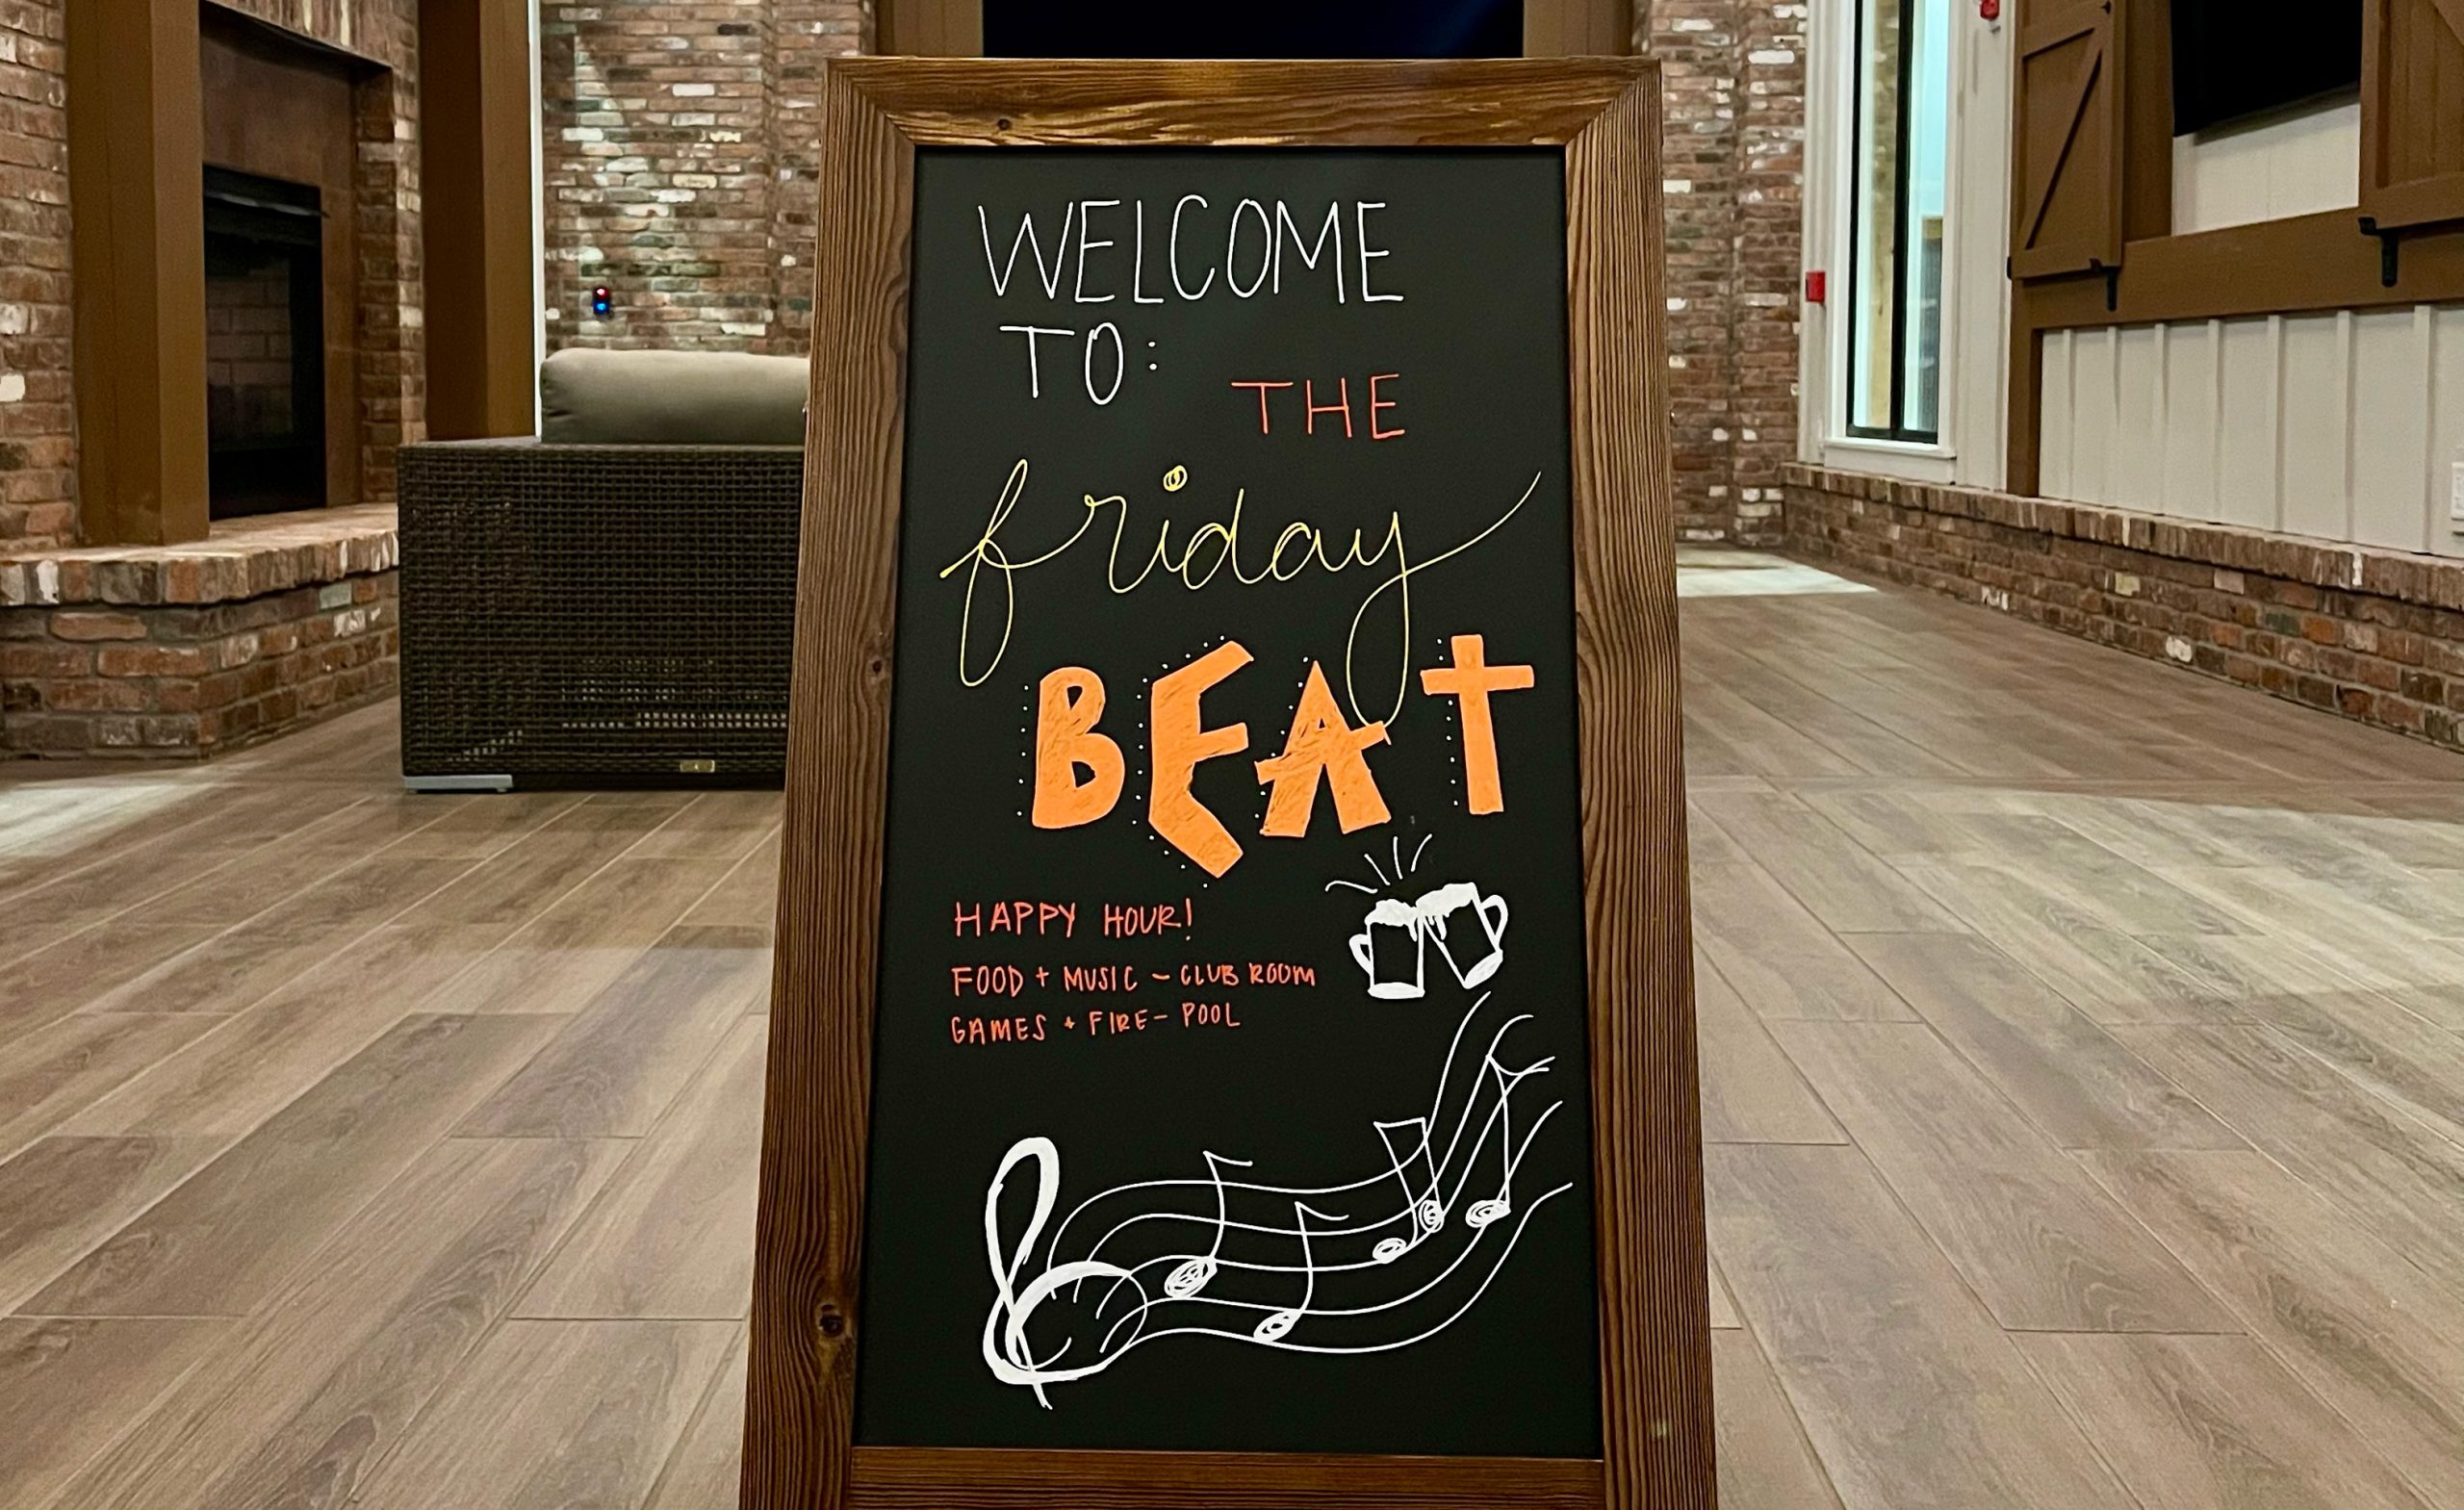 WELCOME
TO:
THE
friday
BEAT
HAPPY HOUR!
FOOD + MUSIC - CLUB ROOM
GAMES + FIRE - POOL